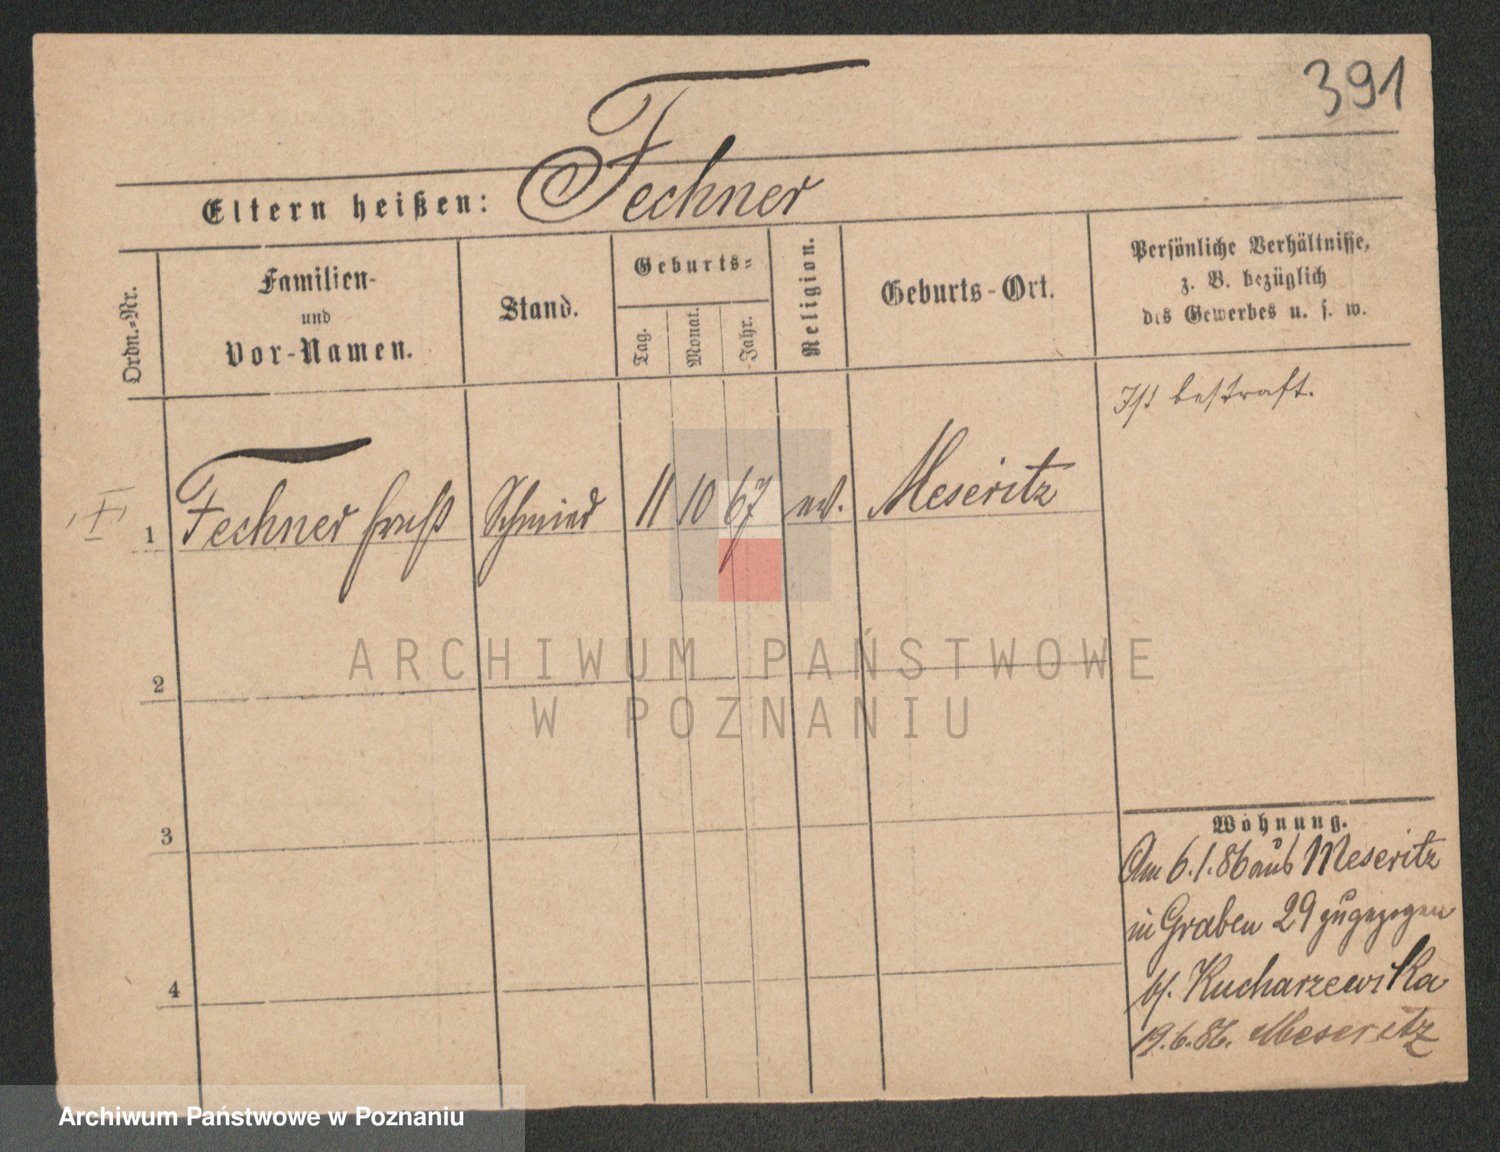 391
Eltern heißen: Fechner
Ordn.-Nr.
Familien-
und
Vor-Namen.
Stand.
Geburts-
Tag.
Monat.
Jahr.
Religion.
Geburts-Ort.
Persönliche Verhältnisse,
z. B. bezüglich
des Gewerbes u. s. w.
Ist bestraft.
1 Fechner Ernst Schmied 11 10 67 ev. Meseritz
2
3
4
Wohnung.
Am 6.1.86 aus Meseritz
in Graben 29 zugezogen
b/. Kucharzewska
19.6.86. Meseritz
ARCHIWUM PAŃSTWOWE
W POZNANIU
Archiwum Państwowe w Poznaniu